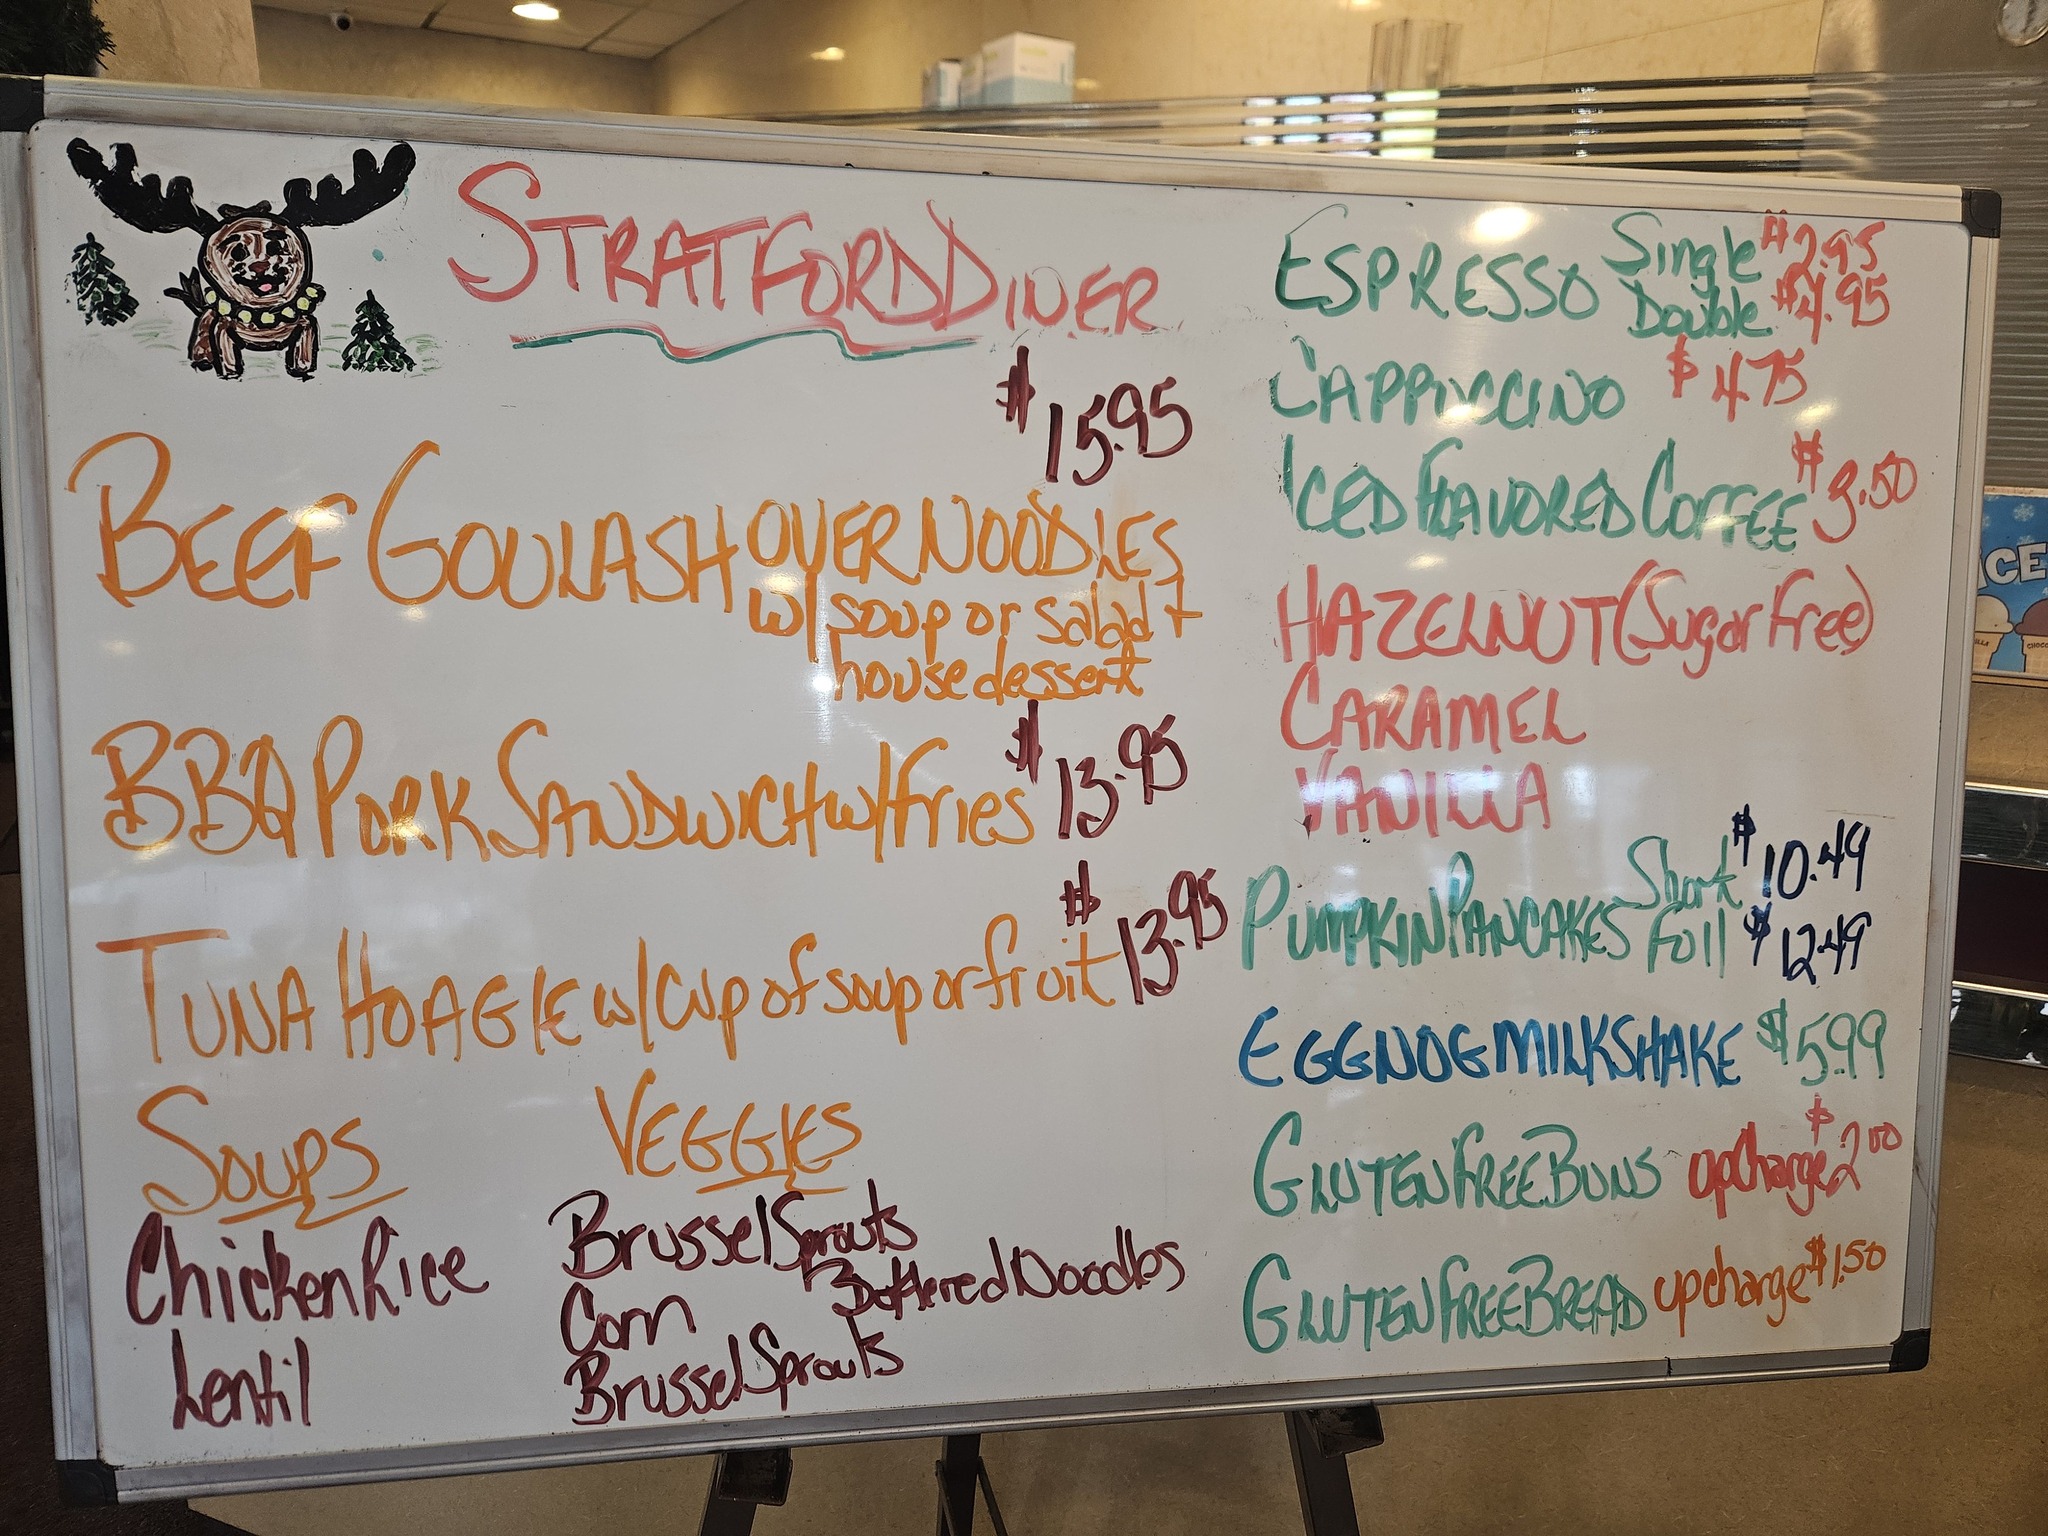 STRATFORD DINER
$15.95
BEEF GOULASH OVER NOODLES
w/ soup or salad +
house dessert
BBQ PORK SANDWICH w/ fries $13.95
TUNA HOAGIE w/ cup of soup or fruit $13.95
SOUPS
Chicken Rice
Lentil
VEGGIES
Brussel Sprouts
Buttered Noodles
Corn
Brussel Sprouts
ESPRESSO Single $2.95
Double $4.95
CAPPUCCINO $4.75
ICED FLAVORED COFFEE $3.50
HAZELNUT (Sugar Free)
CARAMEL
VANILLA
PUMPKIN PANCAKES Short $10.49
Full $12.49
EGGNOG MILKSHAKE $5.99
GLUTEN FREE BUNS upcharge $2.00
GLUTEN FREE BREAD upcharge $1.50
ICE